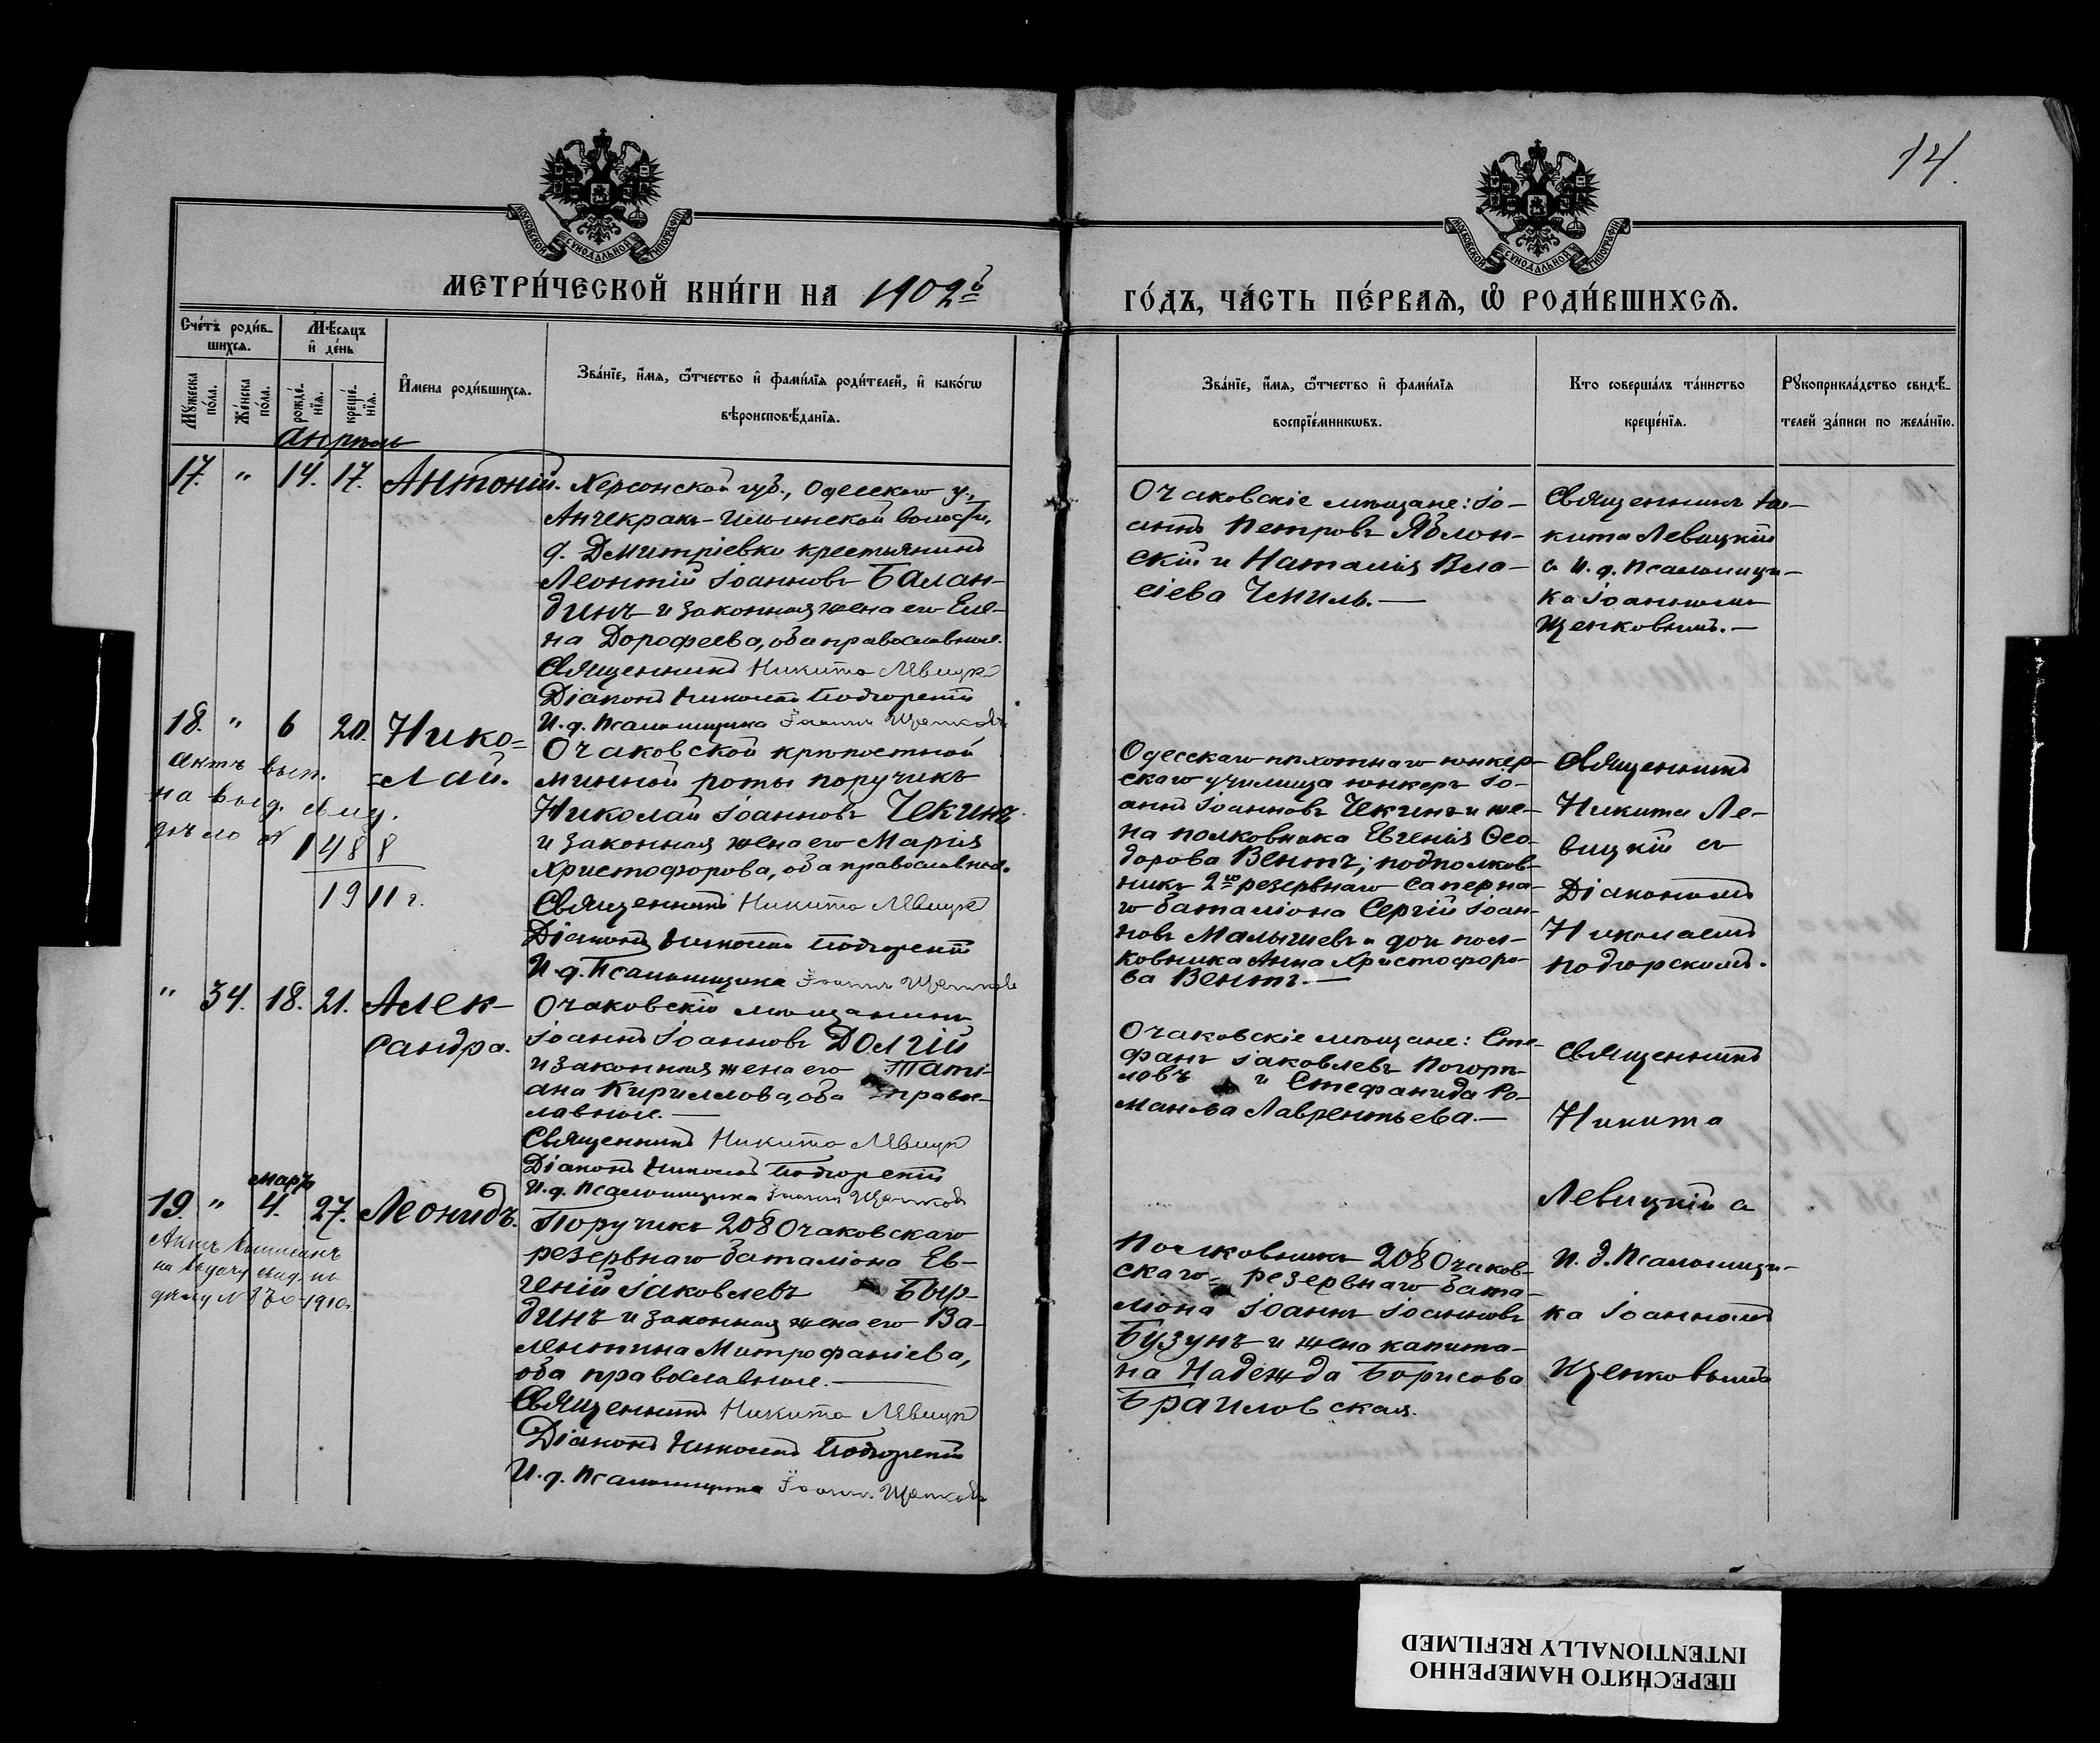 14.
МОСКОВСКОЙ СѴНОДАЛЬНОЙ ТИПОГРАФІИ
МОСКОВСКОЙ СѴНОДАЛЬНОЙ ТИПОГРАФІИ
МЕТРИ́ЧЕСКОЙ КНИ́ГИ НА 1902й
ГО́ДЪ, ЧА́СТЬ ПЕ́РВАЯ, Ѽ РОДИ́ВШИХСЯ.
Сче́тъ роди́в-
шихся.
Мѣ́сяцъ
и҆ де́нь
Му́жеска
по́ла.
Же́нска
по́ла.
рожде́-
нїя.
креще́-
нїя.
И҆мена роди́вшихся.
Зва́нїе, и҆́мя, ѻ҆́тчество и҆ фами́лїя роди́телей, и҆ како́гѡ
вѣроисповѣ́данїя.
Зва́нїе, и҆́мя, ѻ҆́тчество и҆ фами́лїя
воспрїе́мникѡвъ.
Кто соверша́лъ та́инство
креще́нїя.
Рꙋкоприкла́дство свидѣ́-
телей за́писи по жела́нїю.
апрѣль
17. " 14. 17. Антоній.
Херсонской губ., Одесскаго у.,
Анчекракъ-Ильинской волости,
д. Дмитріевки крестьянинъ
Леонтій Іоанновъ Балан-
динъ и законная жена его Еле-
на Дорофеева, оба православные.
Священникъ Никита Левицкій
Діаконъ Николай Подгорскій
И. д. Псаломщика Іоаннъ Щепковъ
Очаковскіе мѣщане: Іо-
аннъ Петровъ Яблон-
скій и Наталія Вла-
сіева Чмиль.—
Священникъ Ни-
кита Левицкій
с И. д. Псаломщи-
ка Іоанномъ
Щепковымъ.—
18. " 6 20. Нико=
=лай.
актъ вып.
на выд. свид.
дѣло №
1488
1911 г.
Очаковской крѣпостной
минной роты поручикъ
Николай Іоанновъ Чекинъ
и законная жена его Марія
Христофорова, оба православные.
Священникъ Никита Левицкій
Діаконъ Николай Подгорскій
И. д. Псаломщика Іоаннъ Щепковъ
Одесскаго пѣхотнаго юнкер-
скаго училища юнкеръ Іо-
аннъ Іоанновъ Чекинъ и же-
на полковника Евгенія Ѳео-
дорова Вентъ; подполков-
никъ 2го резервнаго Саперна-
го баталіона Сергій Іоан-
новъ Малышевъ и дочь пол-
ковника Анна Христофоро-
ва Вентъ.—
Священникъ
Никита Ле-
вицкій съ
Діакономъ
Николаемъ
Подгорскимъ.
" 34. 18. 21. Алек-
сандра.
Очаковскій мѣщанинъ
Іоаннъ Іоанновъ Долгій
и законная жена его Таті-
ана Кириллова, оба правос-
лавные.—
Священникъ Никита Левицкій
Діаконъ Николай Подгорскій
И. д. Псаломщика Іоаннъ Щепковъ
Очаковскіе мѣщане: Сте-
фанъ Іаковлевъ Погорѣ-
ловъ и Стефанида Ро-
манова Лаврентьева.—
Священникъ
Никита
Левицкій с
И. д. Псаломщи-
ка Іоанномъ
Щепковымъ
мартъ
19. " 4. 27. Леонидъ.
Актъ выписанъ
на выдачу свид. по
дѣлу № 1910 г.
Поручикъ 208 Очаковскаго
резервнаго баталіона Ев-
геній Іаковлевъ Быр-
динъ и законная жена его Ва-
лентина Митрофаніева,
оба православные.—
Священникъ Никита Левицкій
Діаконъ Николай Подгорскій
И. д. Псаломщика Іоаннъ Щепковъ
Полковникъ 208 Очаков-
скаго= резервнаго бата-
ліона Іоаннъ Іоанновъ
Бузунъ и жена капита-
на Надежда Борисова
Браиловская.
ПЕРЕСНЯТО НАМЕРЕННО
INTENTIONALLY REFILMED